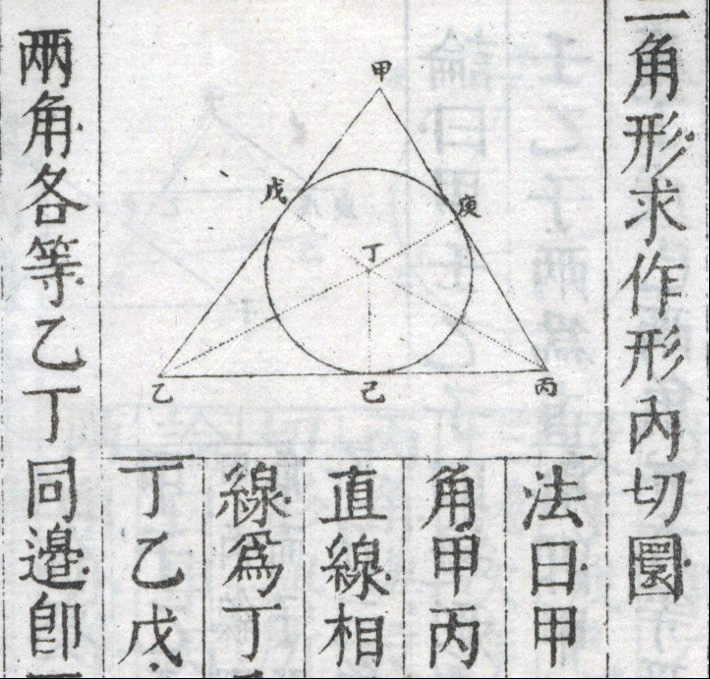 二角形求作形內切圜
法曰甲
角甲丙
直線相
線爲丁
丁乙戊
兩角各等乙丁同邊卽
甲
戊
庚
丁
乙
己
丙